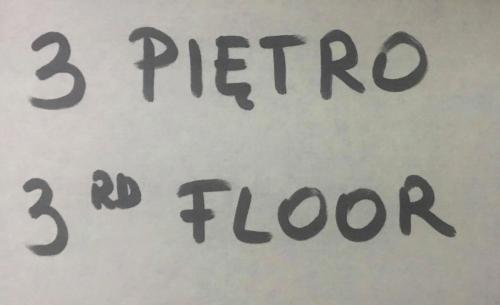 3 PIĘTRO
3RD FLOOR